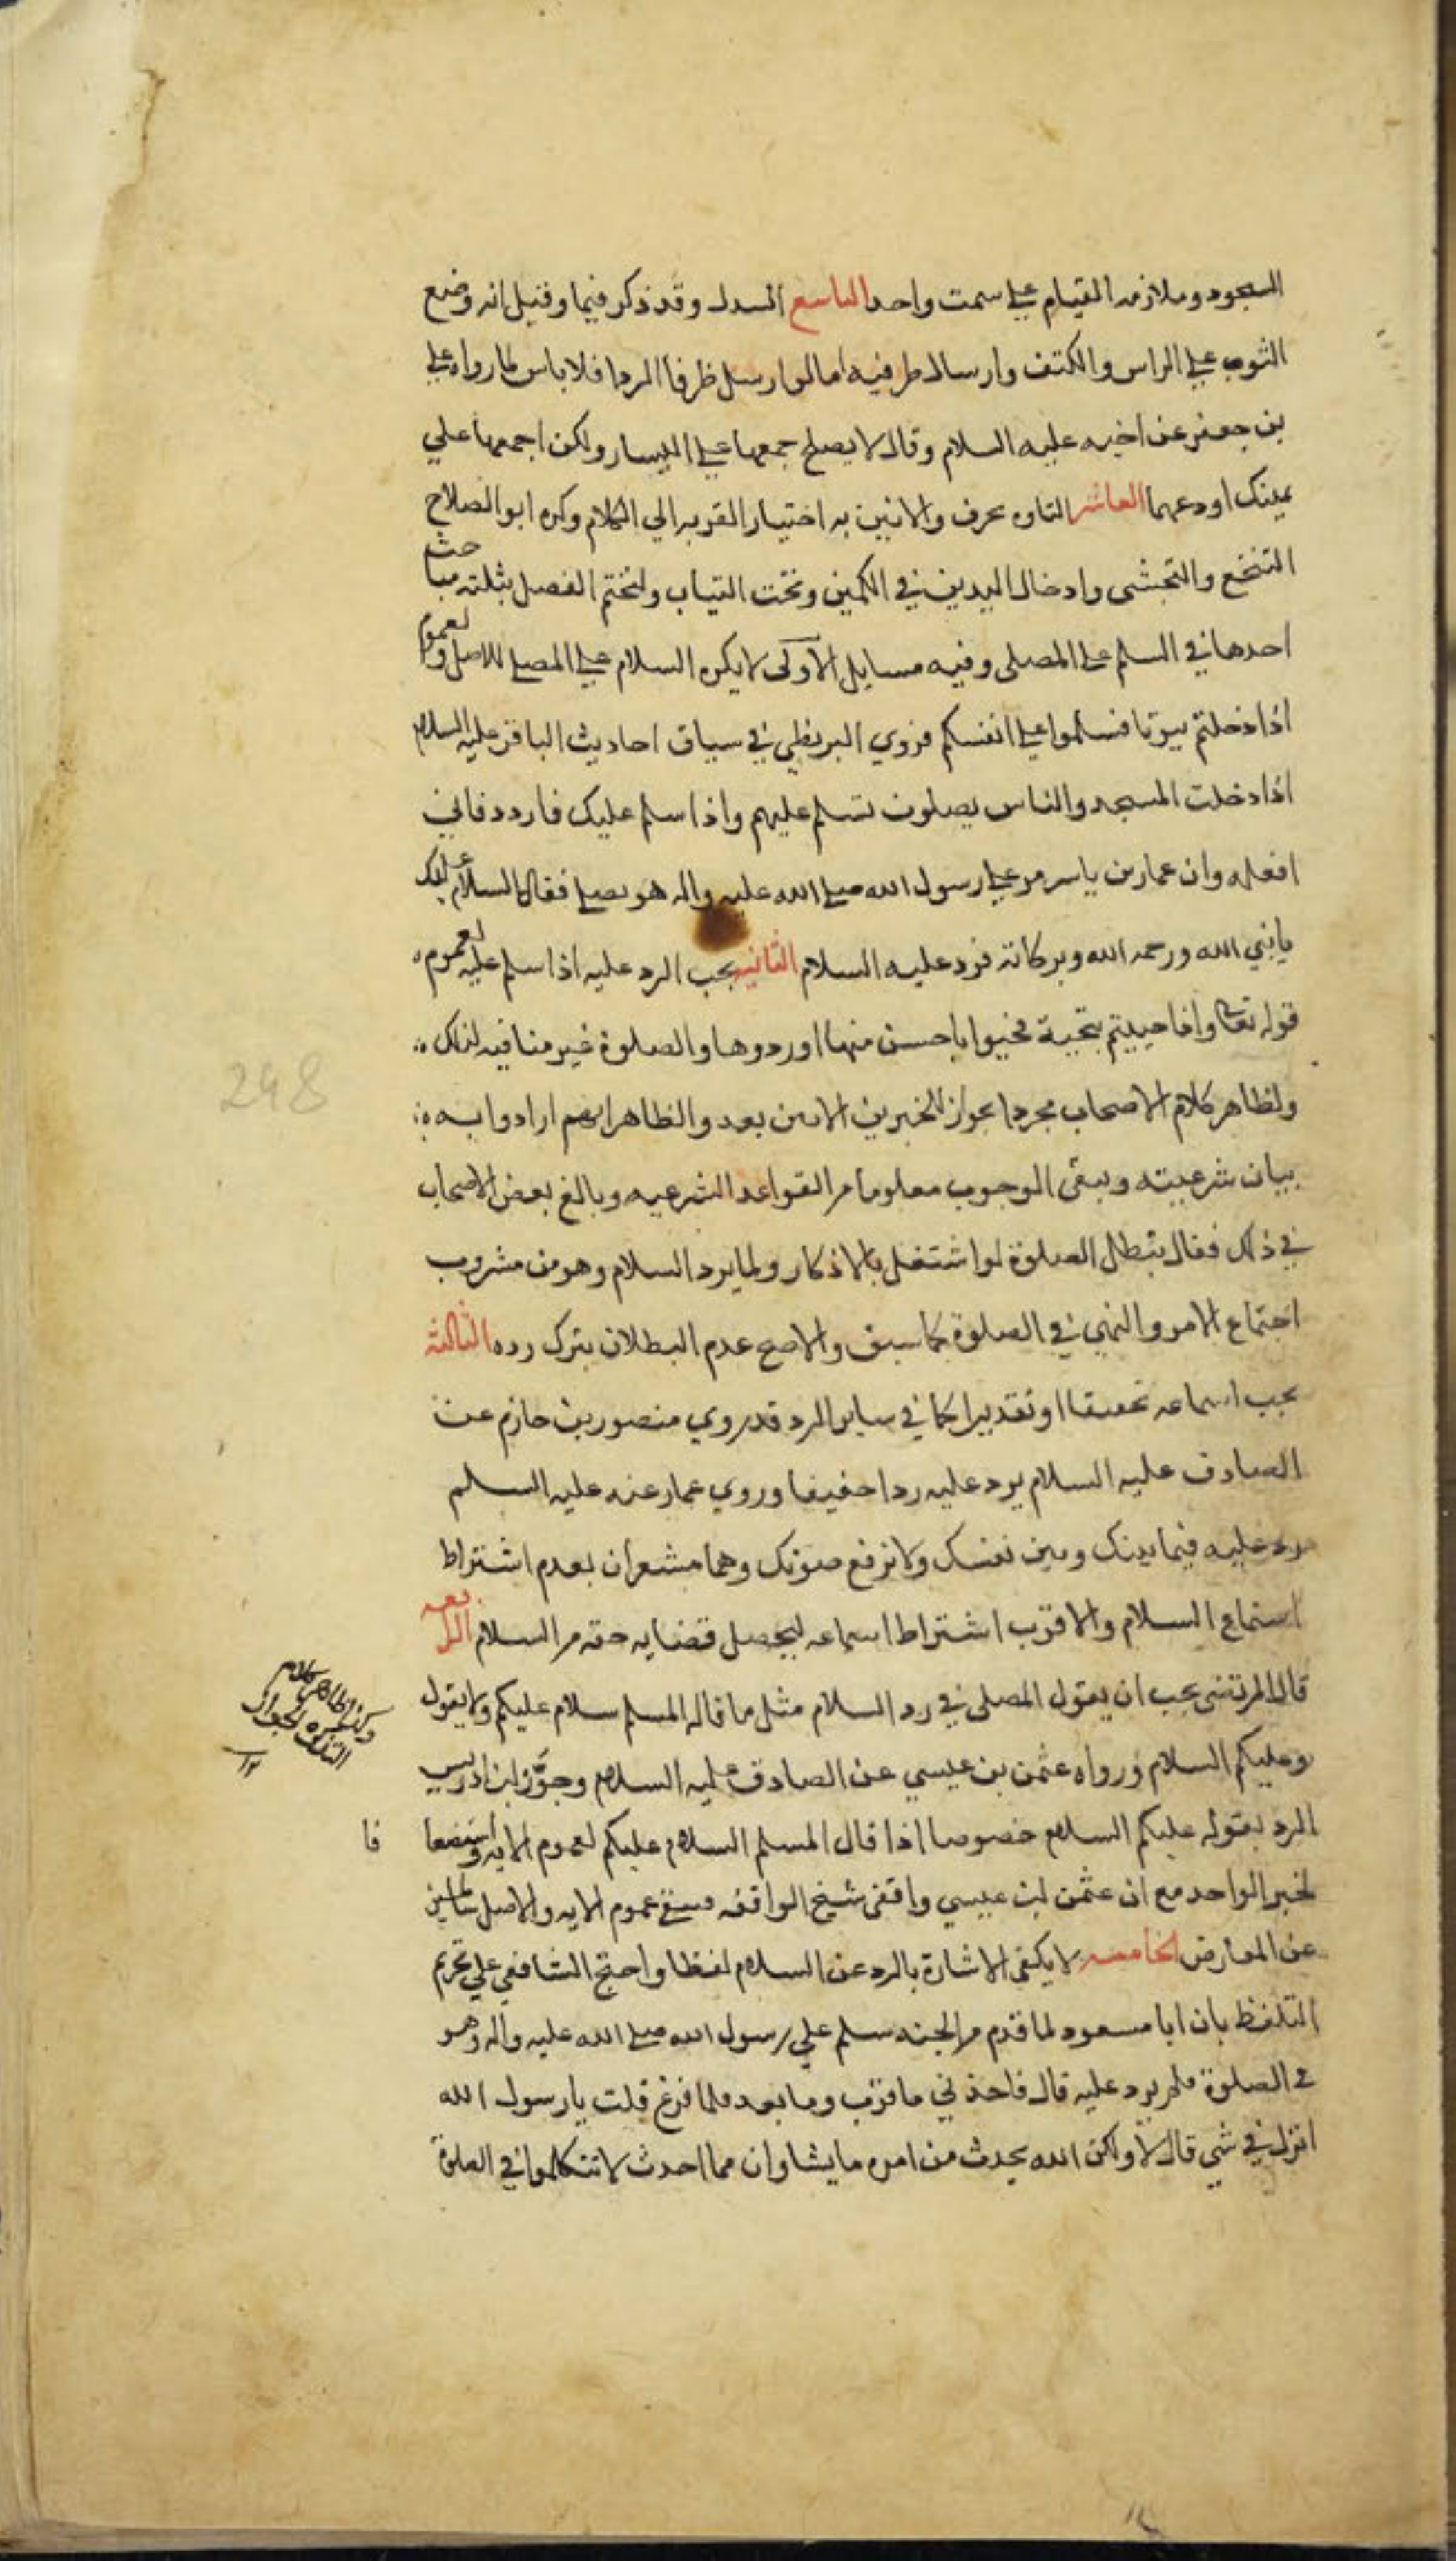 السجود وملازمه القيام علي سمت واحد التاسع السدل وقد ذكر فيما وقيل انه وضع
الثوب علي الراس والكتف وارسال طرفيه اما لو ارسل طرفا الردا فلا باس لما رواه علي
بن جعفر عن اخيه عليه السلام وقال لا يصلح جمعها علي اليسار ولكن اجمعها علي
يمينك او دعهما العاشر التاوه بحرف والانين به اختيارا لقربه الي الكلام وكره ابو الصلاح
التنخع والتجشى وادخال اليدين في الكمين وتحت الثياب ولنختم الفصل بثلثه مباحث
احدها في السلم علي المصلى وفيه مسايل الاولى لا يكره السلام علي المصلي للاصل ولعموم
اذا دخلتم بيوتا فسلموا علي انفسكم فروي البزنطي في سياق احاديث الباقر عليه السلام
اذا دخلت المسجد والناس يصلون تسلم عليهم واذا سلم عليك فاردد فاني
افعله وان عمار بن ياسر مر علي رسول الله صلي الله عليه واله هو يصلي فقال السلام عليك
يا نبي الله ورحمه الله وبركاته فرد عليه السلام الثانيه يجب الرد عليه اذا سلم عليه لعموم
قوله تعالي واذا حييتم بتحية فحيوا باحسن منها او ردوها والصلوة غير منافيه لذلك
ولظاهر كلام الاصحاب مجرد الجواز للخبرين الاتيين بعد والظاهر انهم ارادوا به
بيان شرعيته ويبقى الوجوب معلوما من القواعد الشرعيه وبالغ بعض الاصحاب
في ذلك فقال يبطل الصلوة لو اشتغل بالاذكار ولما يرد السلام وهو من مشروب
اجتماع الامر والنهي في الصلوة كما سبق والاصح عدم البطلان بترك رده الثالثه
يجب اسماعه تحقيقا او تقديرا كما في ساير الرد قد روي منصور بن حازم عن
الصادق عليه السلام يرد عليه ردا خفيفا وروي عمار عنه عليه السلم
رد عليه فيما بينك وبين نفسك ولا ترفع صوتك وهما مشعران بعدم اشتراط
استماع السلام والاقرب اشتراط اسماعه ليحصل قضايه حقه من السلام الرابعه
قال المرتضى يجب ان يقول المصلى في رد السلام مثل ما قاله المسلم سلام عليكم ولا يقول
وعليكم السلام ورواه عثمن بن عيسي عن الصادق عليه السلام وجوز ابن ادريس
الرد بقوله عليكم السلام خصوصا اذا قال المسلم السلام عليكم لعموم الايه واستضعافا
لخبر الواحد مع ان عثمن ابن عيسي واقفى شيخ الواقفه فيبقى عموم الايه والاصل سالمين
عن المعارض الخامسه لا يكفى الاشارة بالرد عن السلام لفظا واحتج الشافعي علي تحريم
التلفظ بان ابا مسعود لما قدم من الحبشه سلم علي رسول الله صلي الله عليه واله وهو
في الصلوة فلم يرد عليه قال فاخذني ما قرب وما بعد فلما فرغ قلت يا رسول الله
انزل في شي قال لا ولكن الله يحدث من امره ما يشا وان مما احدث لا تتكلموا في الصلوة
298
وكذا ظاهر كلام
التذكره الجواز
١٢